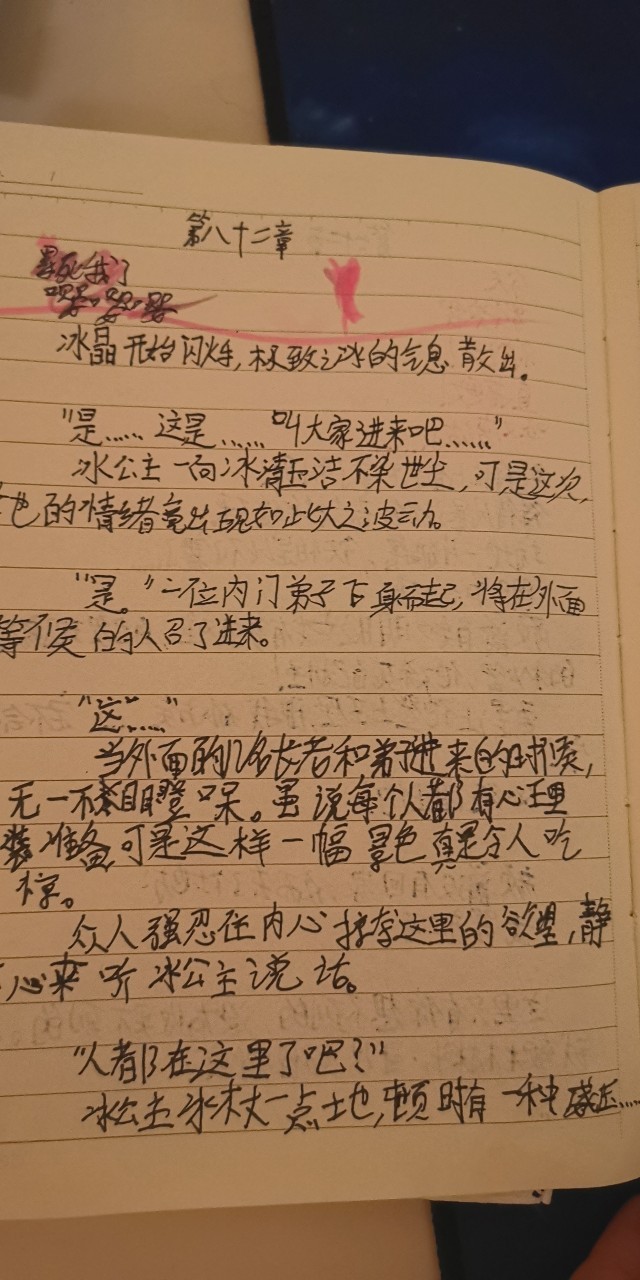 第八十二章
累死我了
哭哭哭
冰晶开始闪烁,极致之冰的气息散出。
"是…… 这是……叫大家进来吧……"
冰公主一向冰清玉洁不染世尘,可是这次,
她的情绪竟出现如此大之波动。
"是。"二位内门弟子飞身而起,将在外面
等候的人召了进来。
"这……"
当外面的几名长老和弟子进来的时候,
无一不目瞪呆。虽说每个人都有心理
准备,可是这样一幅景色真是令人吃
惊。
众人强忍住内心 这里的欲望,静
心来听冰公主说话。
"人都在这里了吧?"
冰公主冰杖一点地,顿时有一种威压……